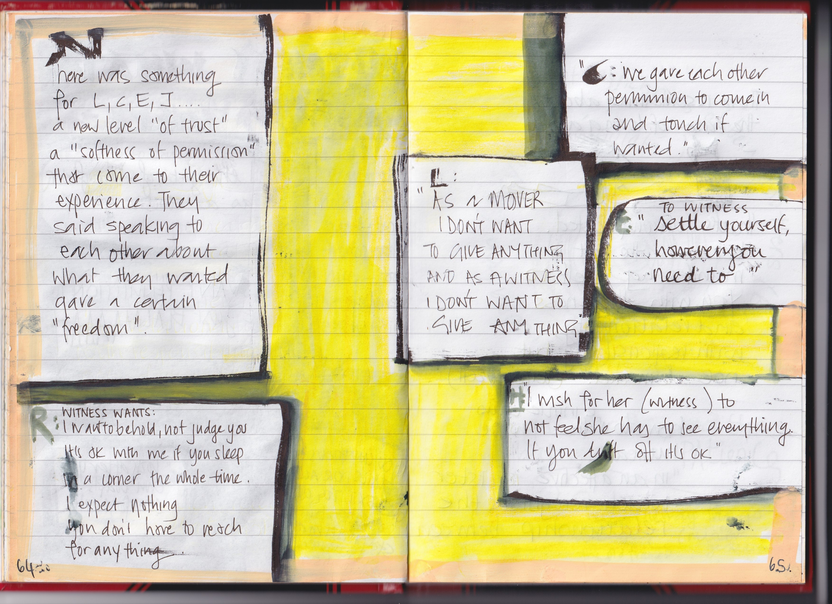 N
here was something
for L, C, E, J....
a new level "of trust"
a "softness of permission"
that come to their
experience. They
said speaking to
each other about
what they wanted
gave a certain
"freedom".
R: WITNESS WANTS:
I want to behold, not judge you
It is ok with me if you sleep
in a corner the whole time.
I expect nothing
you don't have to reach
for anything
64
"C: we gave each other
permission to come in
and touch if
wanted."
L:
"AS A MOVER
I DON'T WANT
TO GIVE ANYTHING
AND AS A WITNESS
I DON'T WANT TO
GIVE ANYTHING"
TO WITNESS
E "Settle yourself,
however you
need to"
H "I wish for her (witness) to
not feel she has to see everything.
If you drift off it is ok"
65.